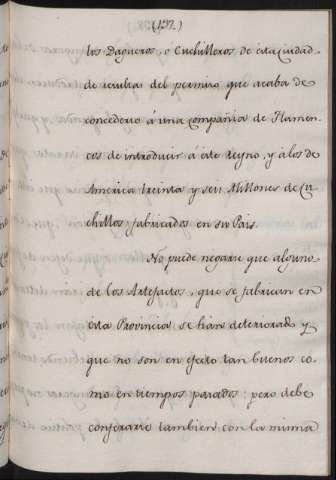 (137.)
los Dagueros, ó Cuchilleros de esta Ciudad
de resultas del permiso que acaba de
concederse á una Compañia de Flamen-
cos de introducir á este Reyno, y á los de
America treinta y seis Millones de Cu-
chillos fabricados en su Pais.
No puede negarse que algunos
de los Artefactos, que se fabrican en
esta Provincia se han deteriorado, y
que no son en efecto tan buenos co-
mo en tiempos pasados: pero debe
confesarse tambien con la misma